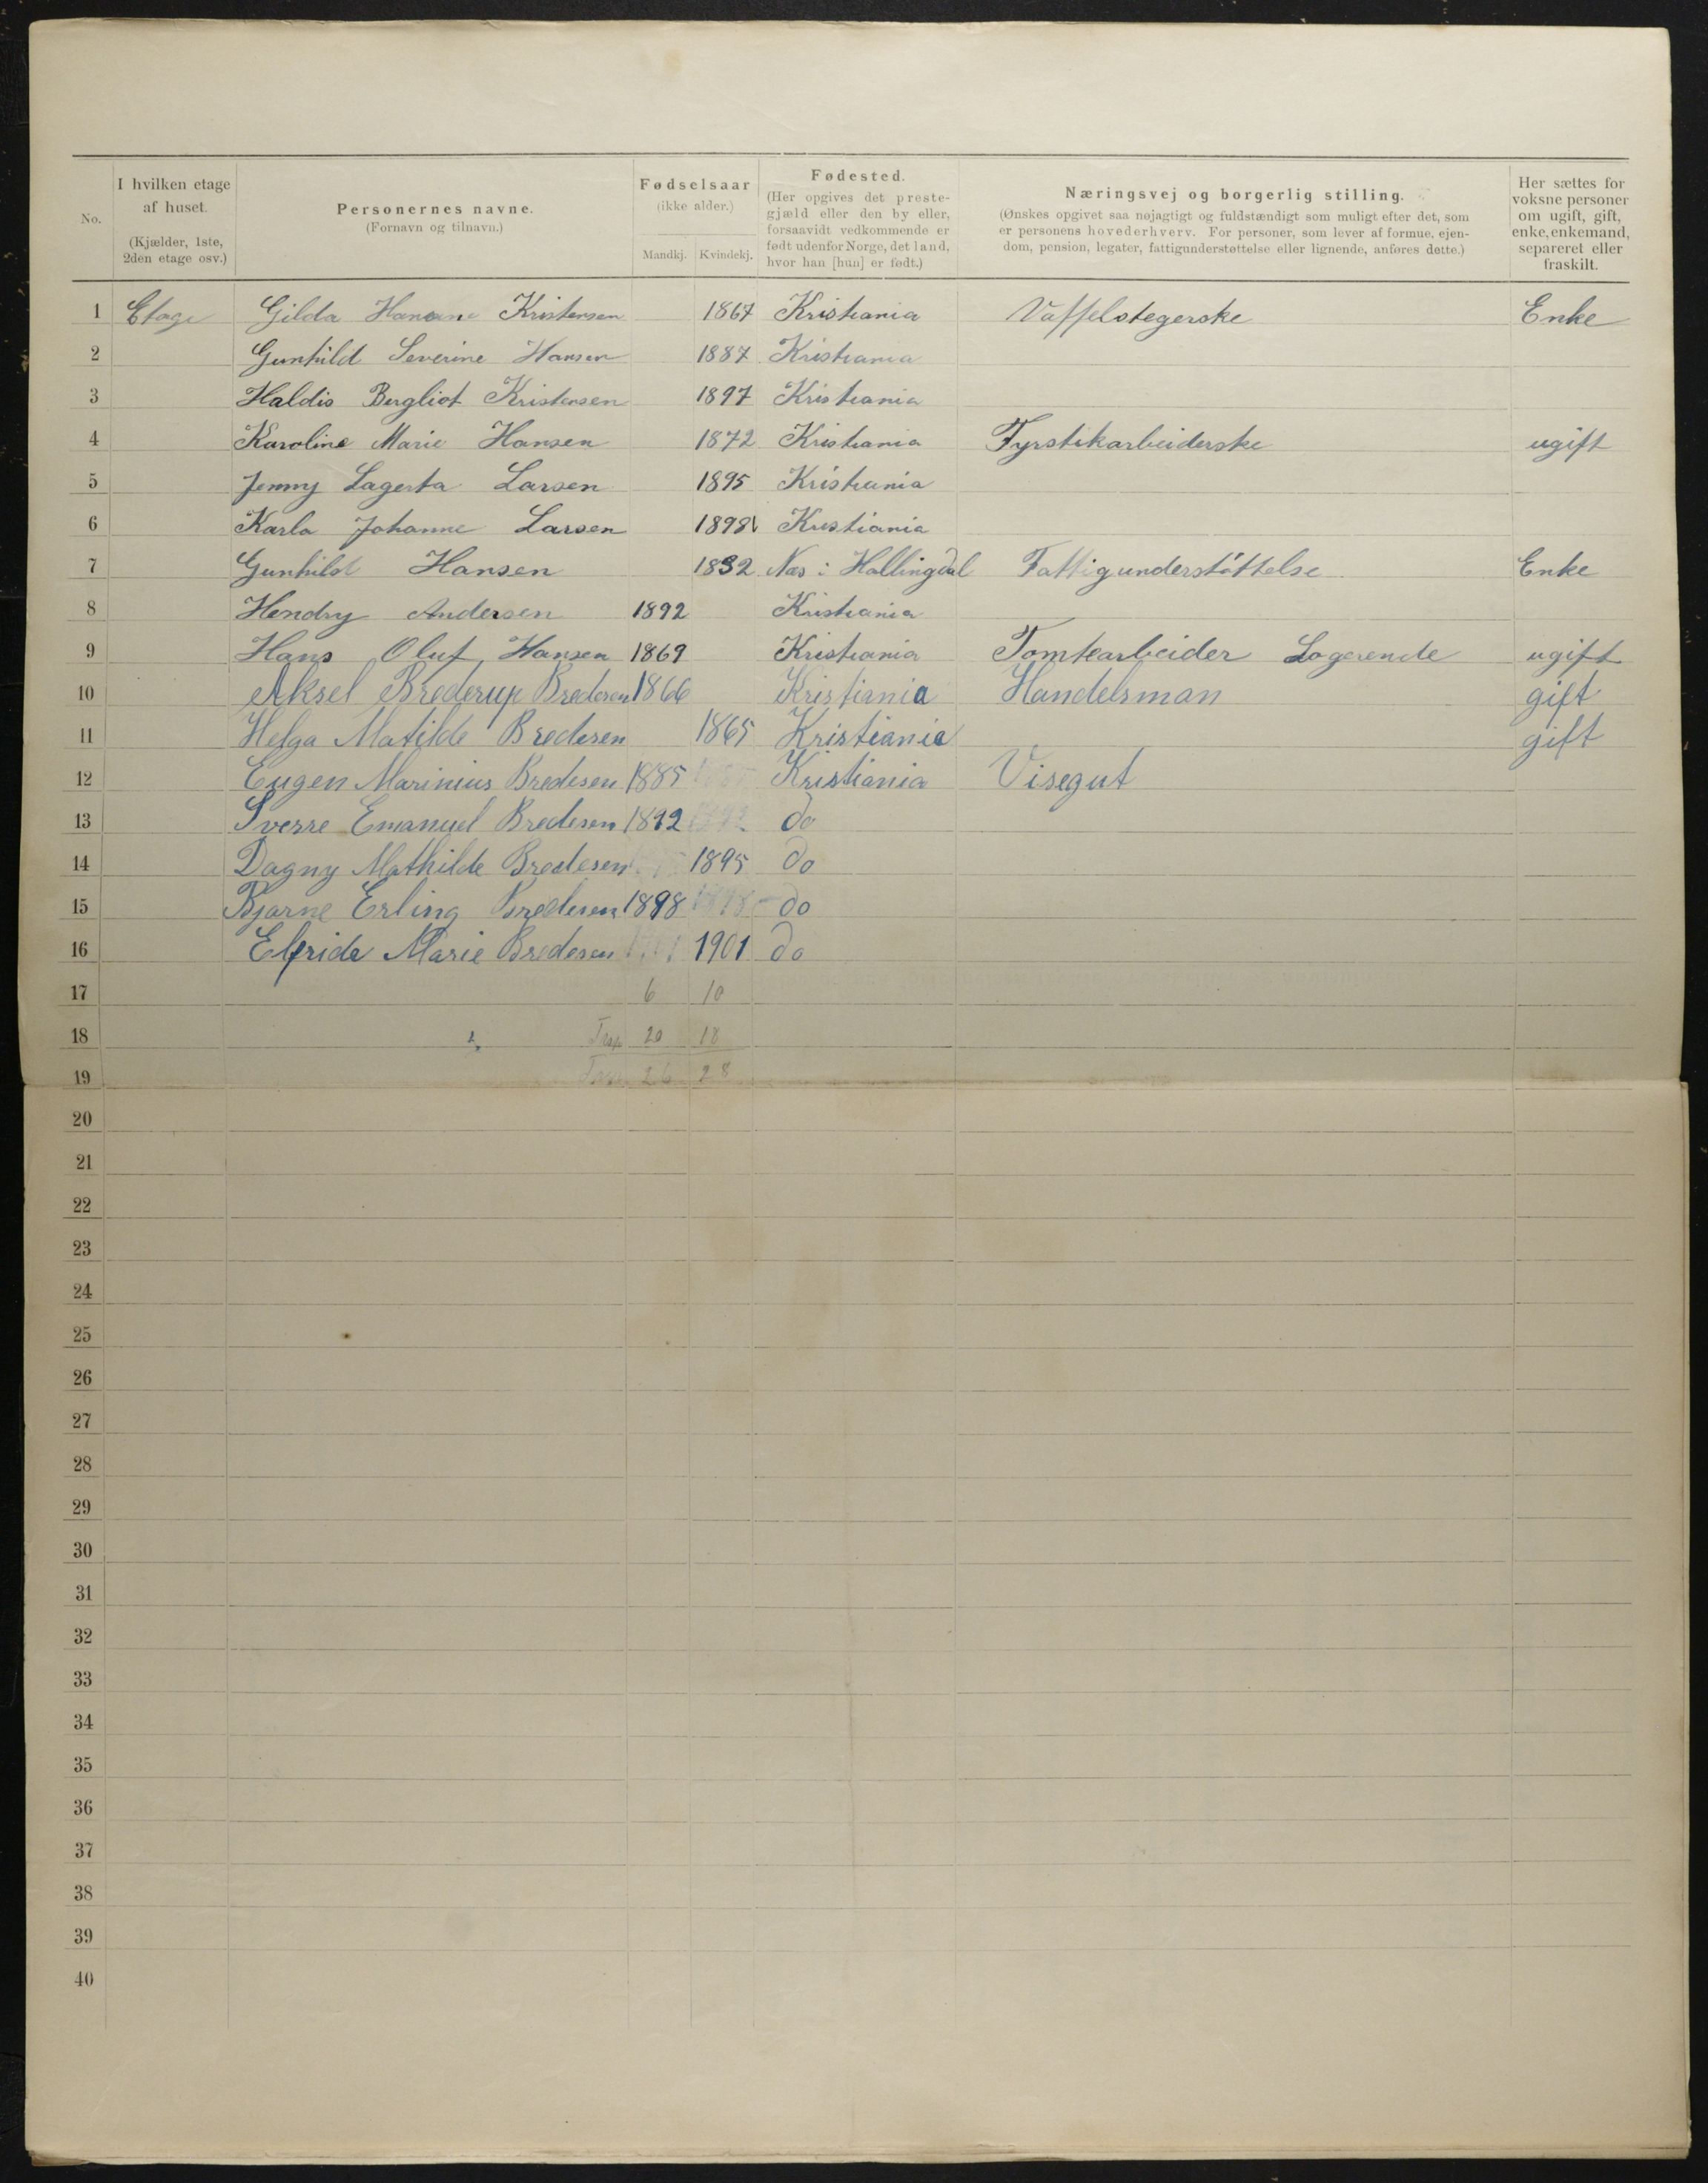 No.
I hvilken etage af huset. (Kjælder, 1ste, 2den etage osv.)
Personernes navne. (Fornavn og tilnavn.)
Fødselsaar (ikke alder.) Mandkj. Kvindekj.
Fødested. (Her opgives det prestegjæld eller den by eller, forsaavidt vedkommende er født udenfor Norge, det land, hvor han [hun] er født.)
Næringsvej og borgerlig stilling. (Ønskes opgivet saa nøjagtigt og fuldstændigt som muligt efter det, som er personens hovederhverv. For personer, som lever af formue, ejendom, pension, legater, fattigunderstøttelse eller lignende, anføres dette.)
Her sættes for voksne personer om ugift, gift, enke, enkemand, separeret eller fraskilt.
1 Etage Gilda Kristensen 1867 Kristiania Vaffelstegerske Enke
2 Gunhild Severine Hansen 1887 Kristiania
3 Haldis Bergliot Kristensen 1897 Kristiania
4 Karoline Marie Hansen 1872 Kristiania Fyrstikarbeiderske ugift
5 Jenny Lagerta Larsen 1895 Kristiania
6 Karla Johanne Larsen 1898 Kristiania
7 Gunhild Hansen 1832 Nes i Hallingdal Fattigunderstøttelse Enke
8 Hendry Andersen 1892 Kristiania
9 Hans Oluf Hansen 1869 Kristiania Tomtearbeider Logerende ugift
10 Aksel Brederup Bredesen 1866 Kristiania Handelsman gift
11 Helga Matilde Bredesen 1865 Kristiania gift
12 Eugen Marinius Bredesen 1885 Kristiania Visegut
13 Sverre Emanuel Bredesen 1892 do
14 Dagny Mathilde Bredesen 1895 do
15 Bjarne Erling Bredesen 1898 do
16 Elfride Marie Bredesen 1901 do
17 6 10
18 20 18
19 26 28
20
21
22
23
24
25
26
27
28
29
30
31
32
33
34
35
36
37
38
39
40